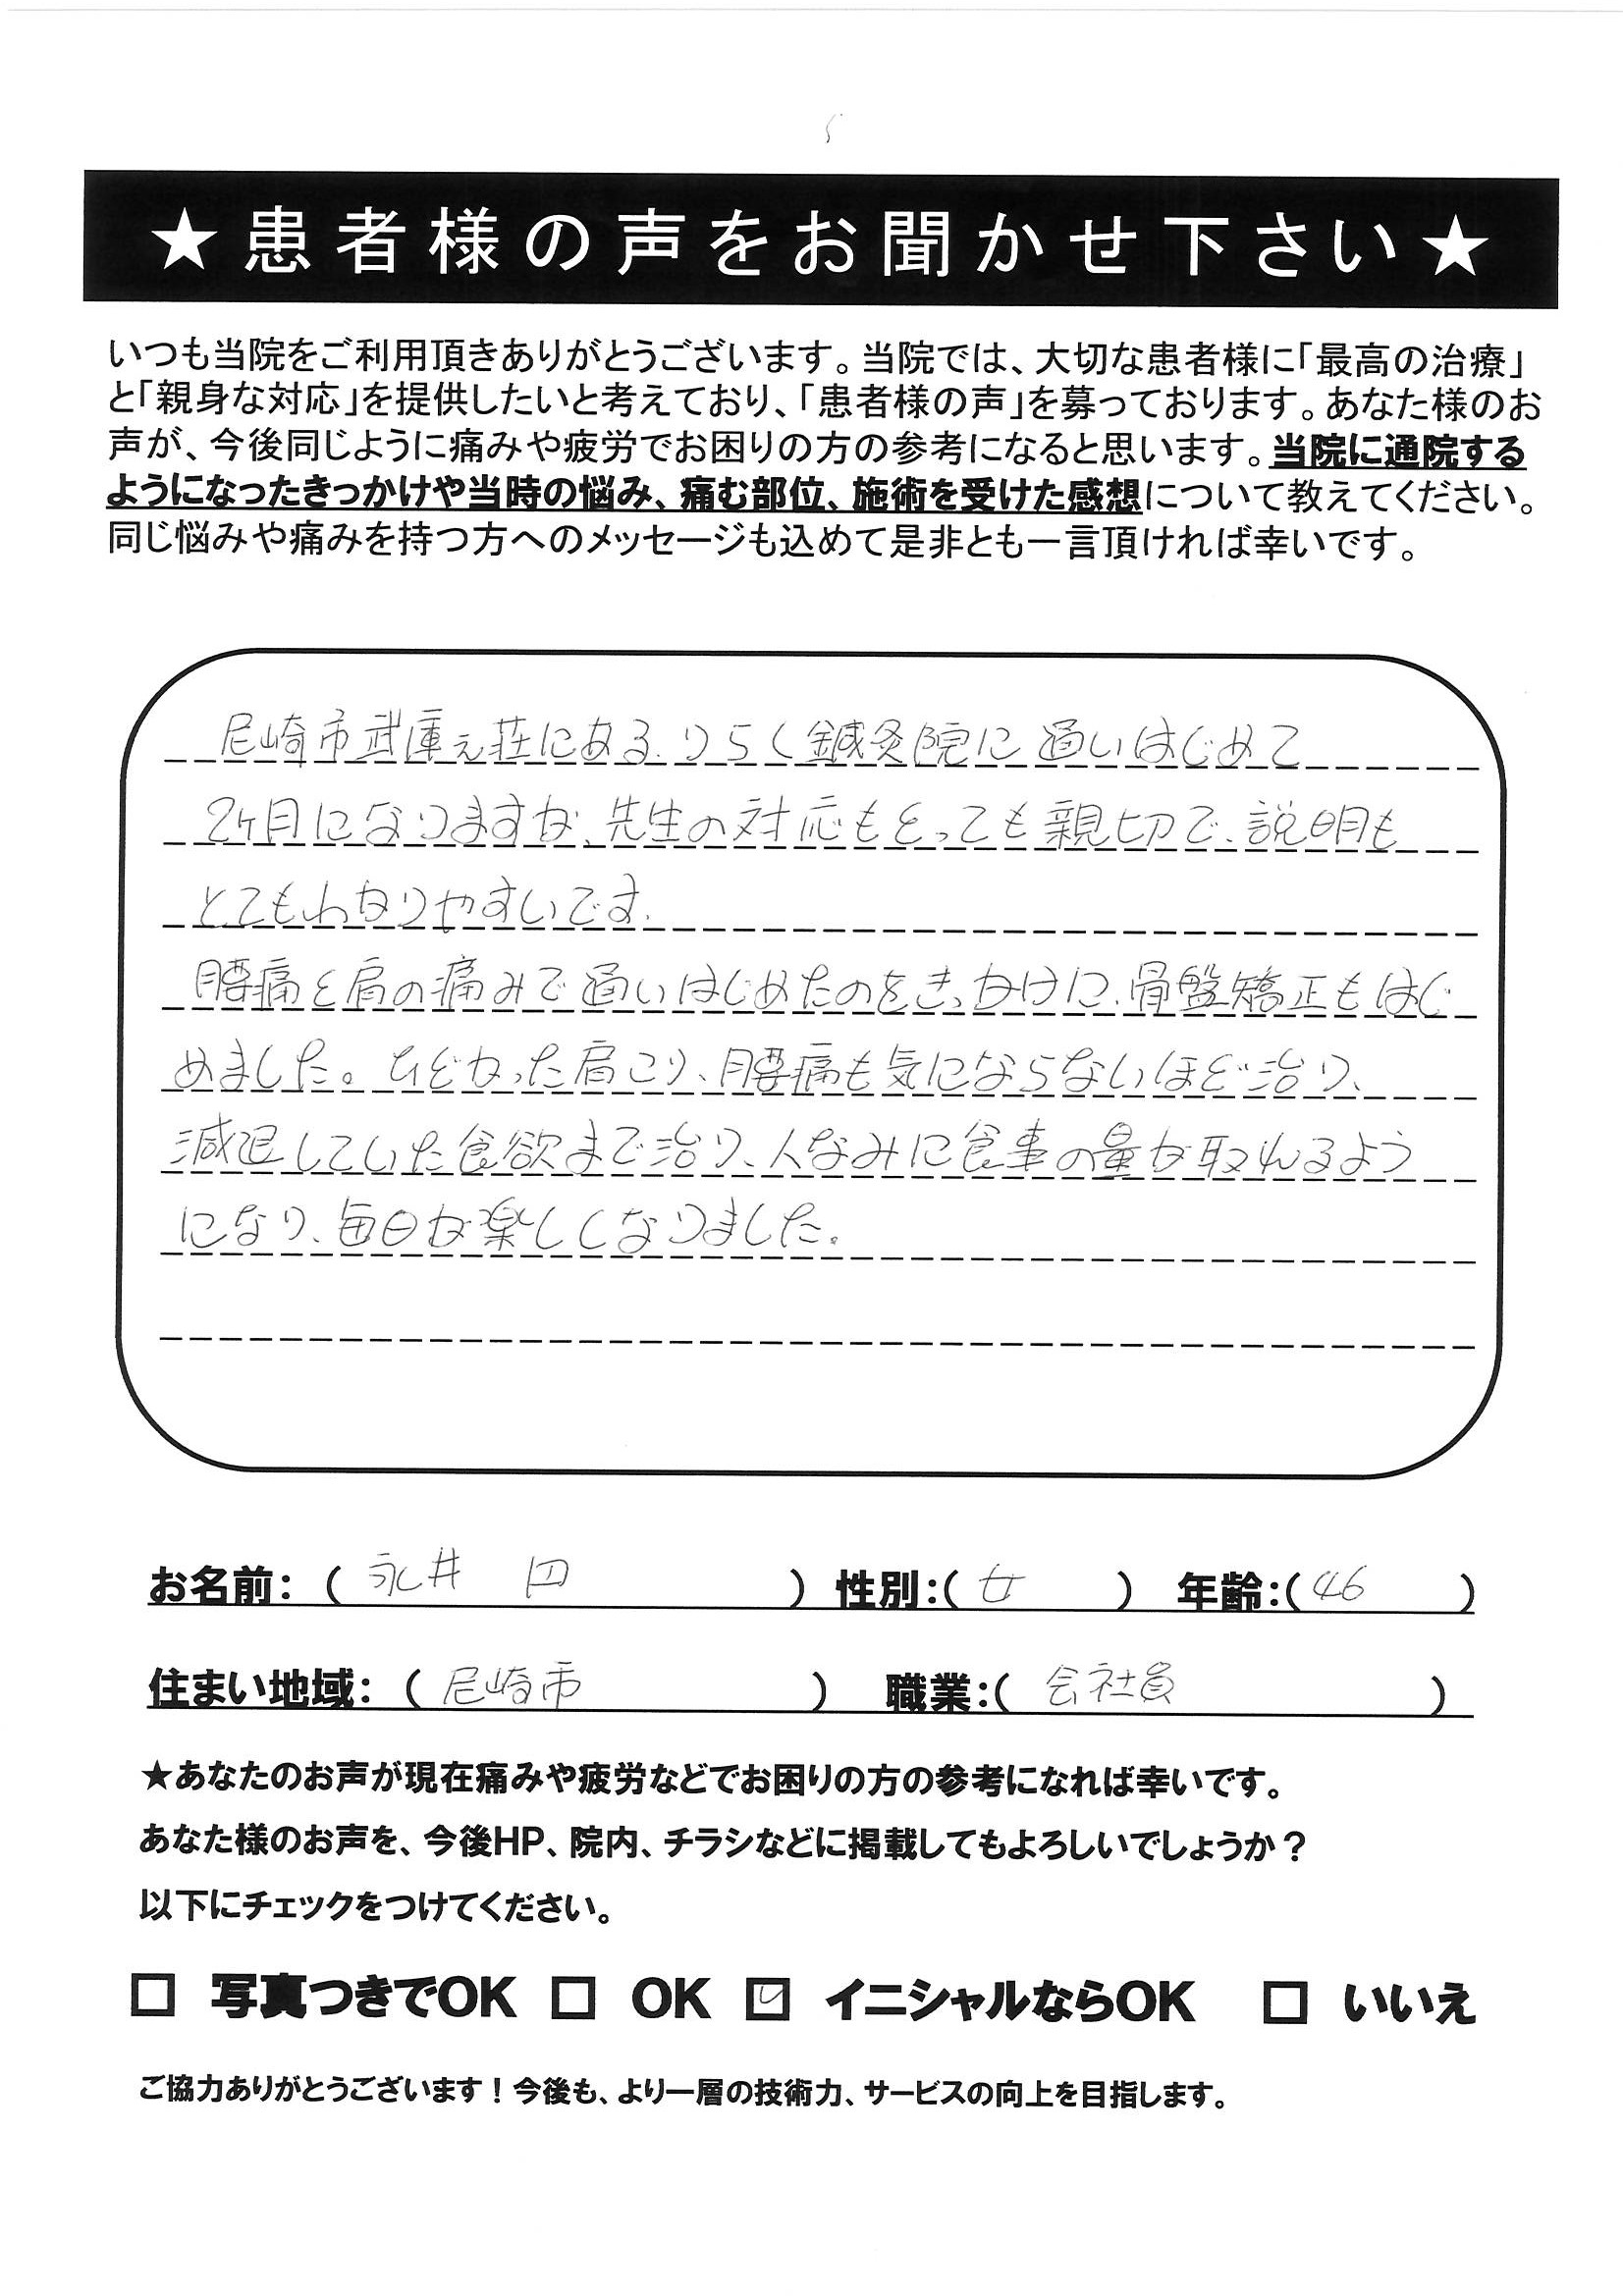 ★患者様の声をお聞かせ下さい★
いつも当院をご利用頂きありがとうございます。当院では、大切な患者様に「最高の治療」
と「親身な対応」を提供したいと考えており、「患者様の声」を募っております。あなた様のお
声が、今後同じように痛みや疲労でお困りの方の参考になると思います。当院に通院する
ようになったきっかけや当時の悩み、痛む部位、施術を受けた感想について教えてください。
同じ悩みや痛みを持つ方へのメッセージも込めて是非とも一言頂ければ幸いです。
尼崎市武庫元荘にある、りらく鍼灸院に通いはじめて
2ヶ月になりますが、先生の対応もとっても親切で、説明も
とてもわかりやすいです。
腰痛と肩の痛みで通いはじめたのをきっかけに、骨盤矯正もはじ
めました。ひどかった肩こり、腰痛も気にならないほど治り、
減退していた食欲まで治り、人なみに食事の量が取れるよう
になり、毎日が楽しくなりました。
お名前：（永井 円） 性別：（女） 年齢：（46）
住まい地域：（尼崎市） 職業：（会社員）
★あなたのお声が現在痛みや疲労などでお困りの方の参考になれば幸いです。
あなた様のお声を、今後HP、院内、チラシなどに掲載してもよろしいでしょうか？
以下にチェックをつけてください。
□ 写真つきでOK □ OK ☑ イニシャルならOK □ いいえ
ご協力ありがとうございます！今後も、より一層の技術力、サービスの向上を目指します。